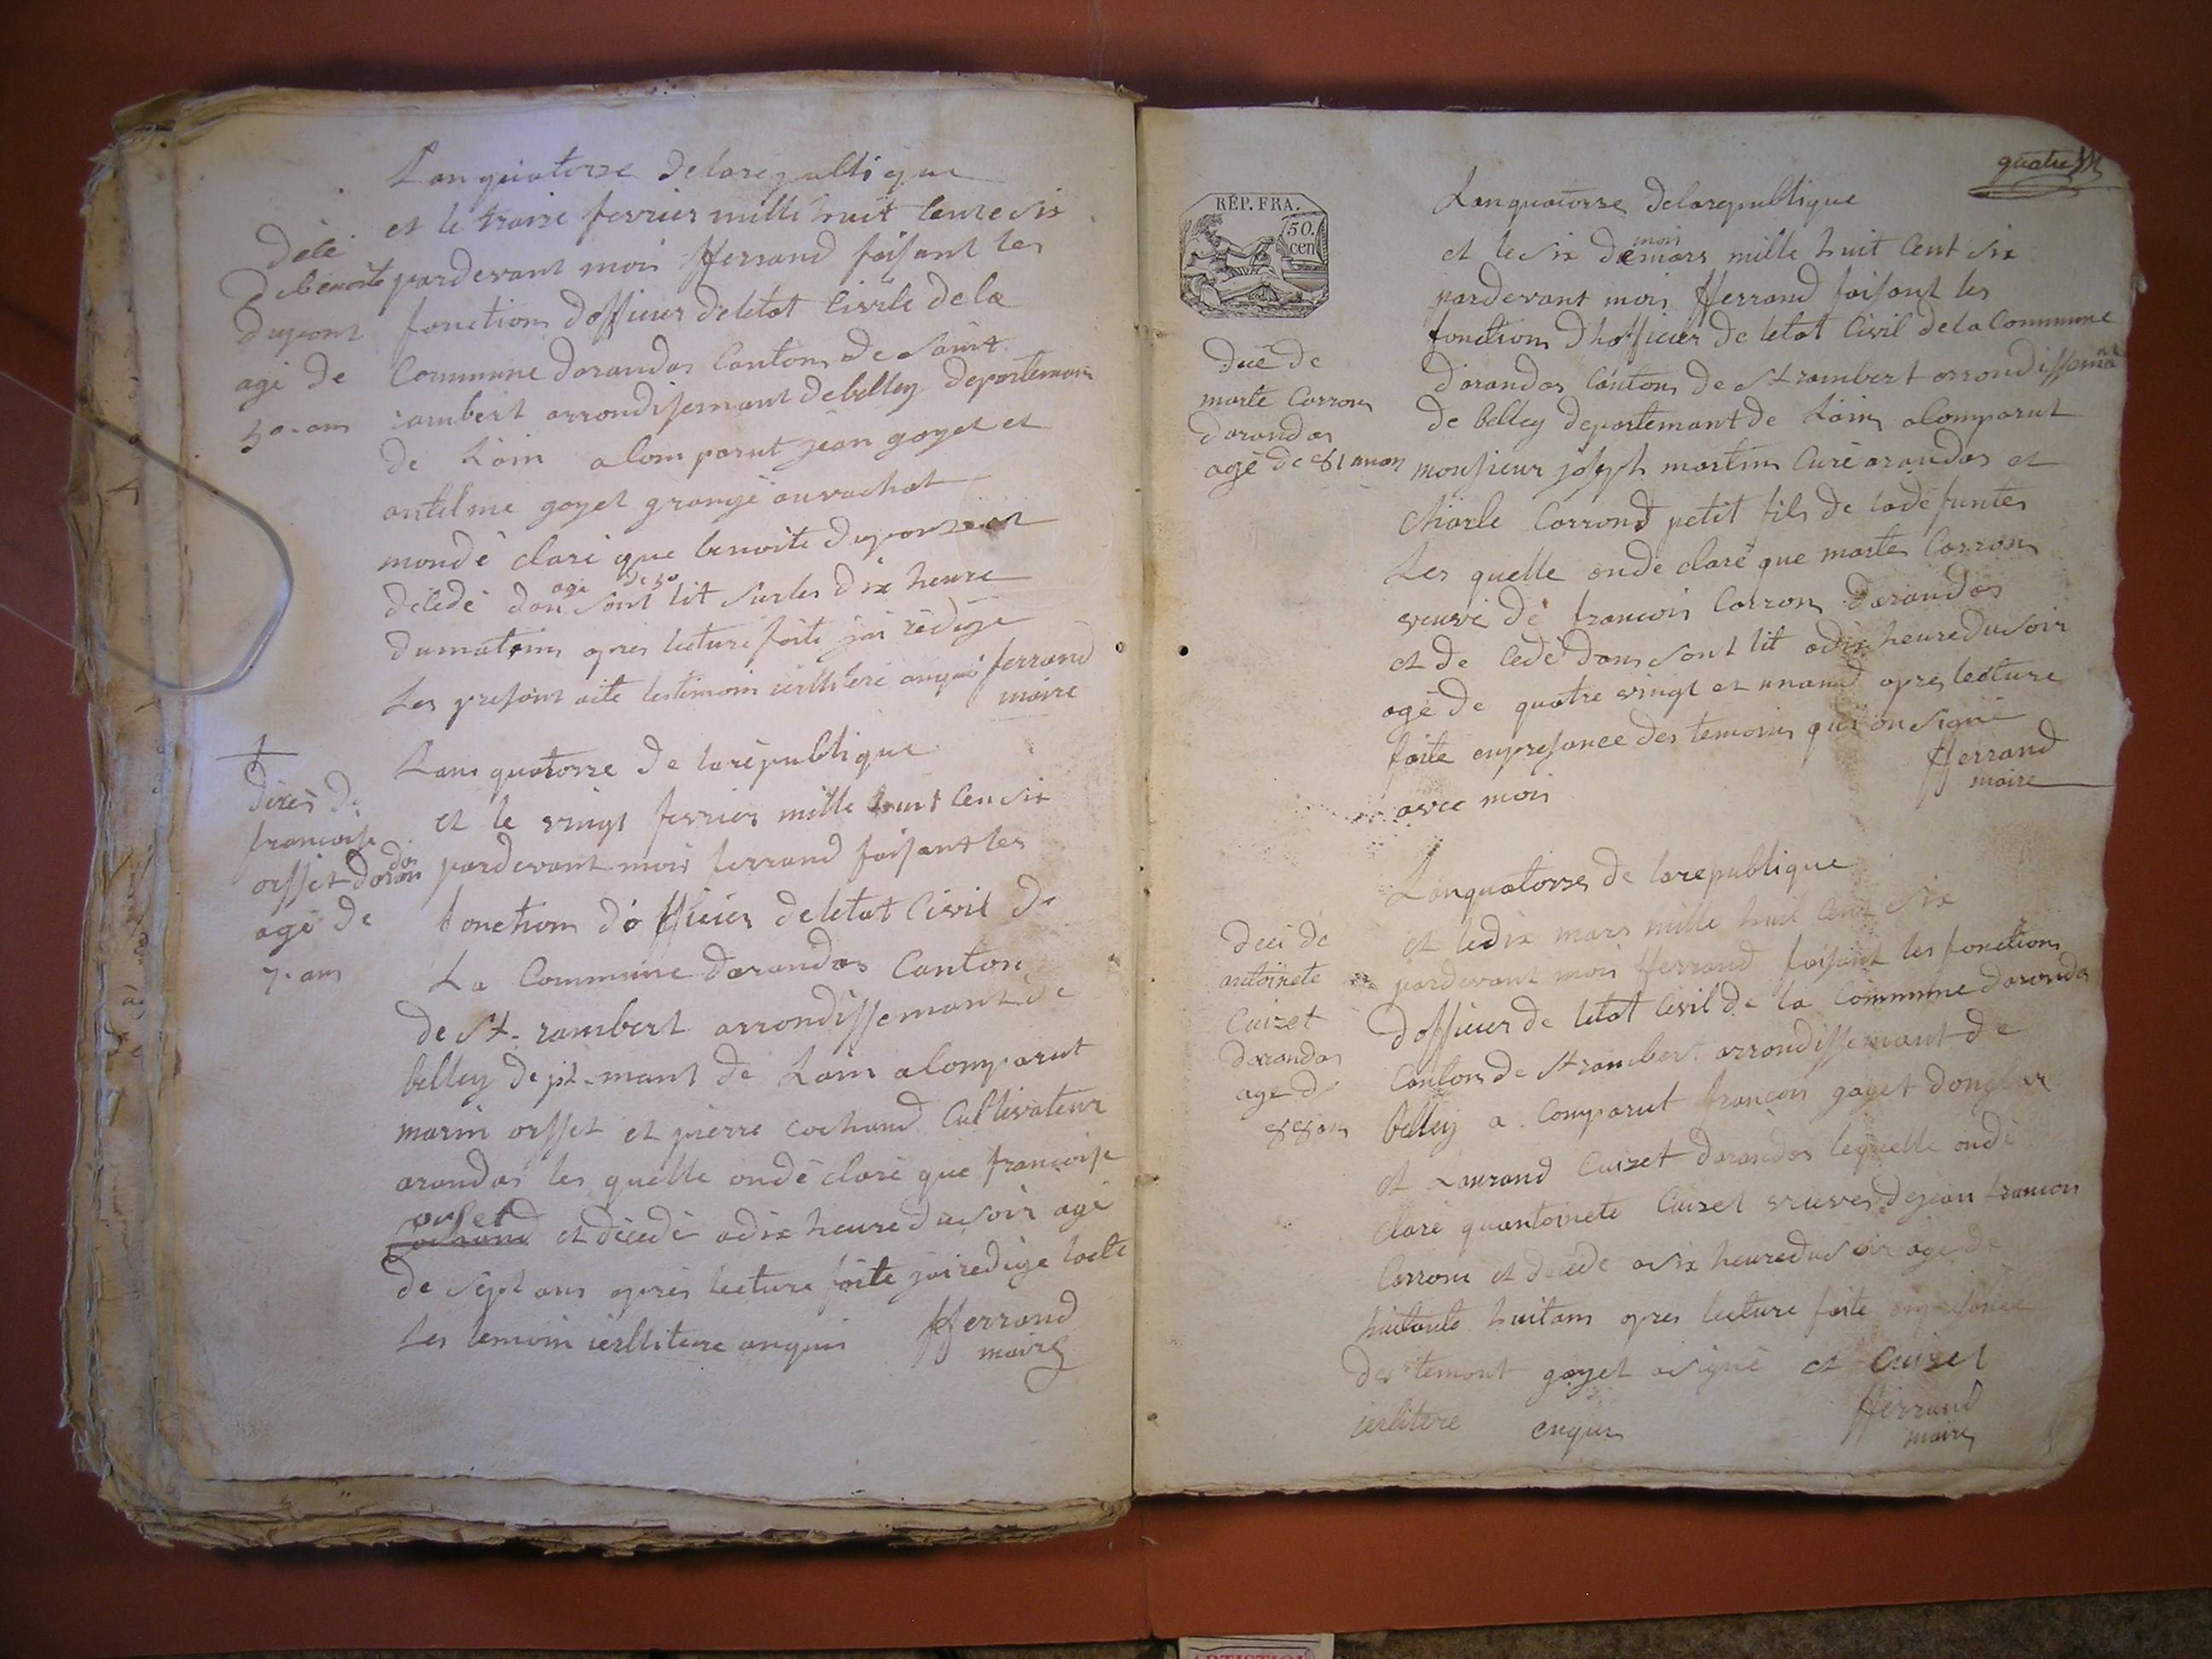 Lan quatorze delarepublique
et le traize fevrier mille huit cent e six
pardevant moi fferrand faisant les
fonction dofficier deletat Civile dela
Commune darandas Canton de saint
rambert arrondisemant debelley departeman
de Lain a Comparut jean goyet et
antelme goyet
mondé claré que benoite dupon
décédé dan sont lit sur les dix heure
agé de 50
dumatin apres lecture faite jai rédigé
Les presant acte les temoin ferrand
maire
décé
de benoite
dupont
agé de
50-ans
Lan quatorze de larépublique
et le vingt fevrier mille huit Cen six
pardevant moi ferrand faisant les
fonction dofficier deletat Civil de
La Commune darandas Canton
de St-rambert arrondissemant de
belley dept-mant de Lain a Comparut
marin orsset et pierre cochand Cultivateur
arandas les quelle ondé claré que francoise
orset
cochand et décedé adix heure dusoir agé
de sept ans apres lecture faite jai redigé lacte
Les temoin fferrand
maire
décès de
francoise
orsset daran
das
agé de
7-ans
quatre
RÉP. FRA.
50.
cen
Lan quatorze delarepublique
et le six demars mille huit Cent six
mois
pardevant moi fferrand faisant les
fonction dhofficier de letat Civil dela Commune
darandas Canton de St rambert arrondissemant
de belley departemant de Lain a Comparut
monsieur joseph martin Curé arandas et
Charle Carrond petit fils de ladefunte
Les quelle onde claré que marte Carron
veuve de francois Carron darandas
et de cedé dans sont lit adix heure dusoir
agé de quatre vingt et un and apres lecture
faite enpresance des temoin qui on signé
avec moi
fferrand
maire
décé de
marte Carron
darandas
agé de 81 anon
Lanquatorze de larepublique
et ledix mars mille huit Cent six
pardevant moi fferrand faisant les fonction
dofficier de letat Civil de la Commune darandas
Canton de St rambert arrondissemant de
belley a Comparut francois goyet
et Laurand Cuizet darandas lequelle ondé
claré quantoinete Cuizet veuve dejean francois
Carron et décedé a six heure dusoir agé de
huitante huitans apres lecture faite enpresance
des temont goyet asigné et Cuizet
fferrand
maire
décé de
antoinete
Cuizet
darandas
age de
88 ans